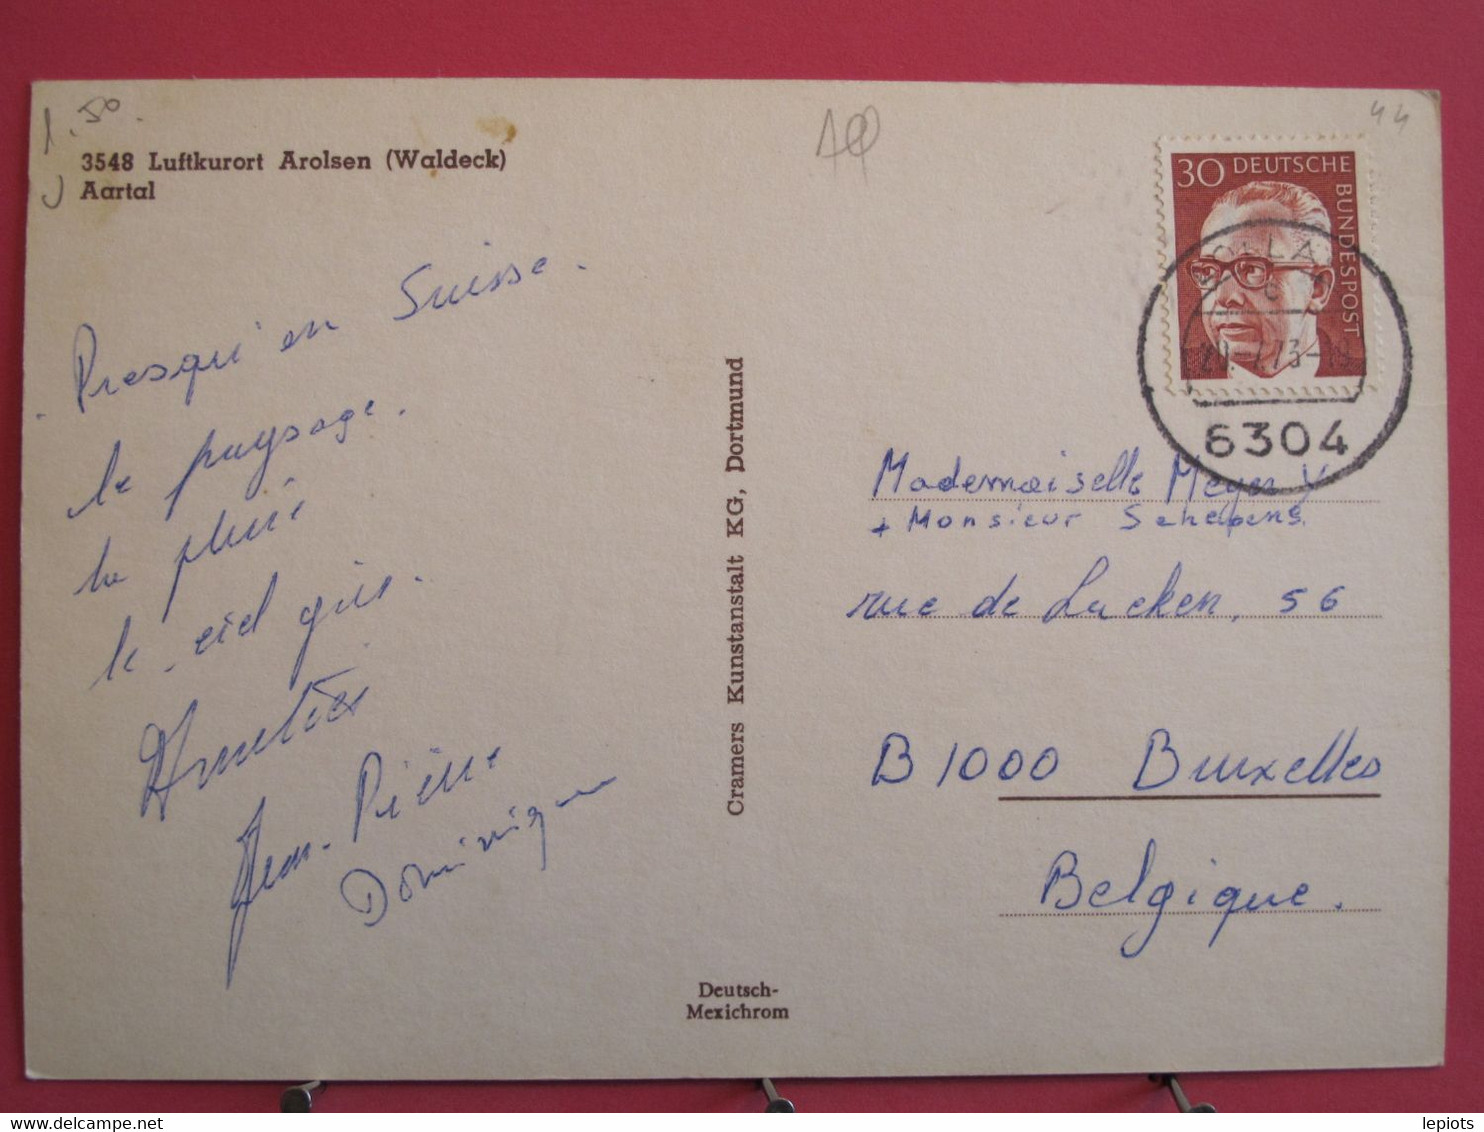 1.50
44
3548 Luftkurort Arolsen (Waldeck)
Aartal
30 DEUTSCHE
BUNDESPOST
20.-7.73-19
6304
Presqu'en Suisse.
le paysage.
la pluie
le ciel gris.
Amitiés
Jean-Pierre
Dominique
Cramers Kunstanstalt KG, Dortmund
Deutsch-
Mexichrom
Mademoiselle Meyer Y
+ Monsieur Schepens.
rue de Laeken, 56
B 1000 Bruxelles
Belgique.
lepiots
delcampe.net